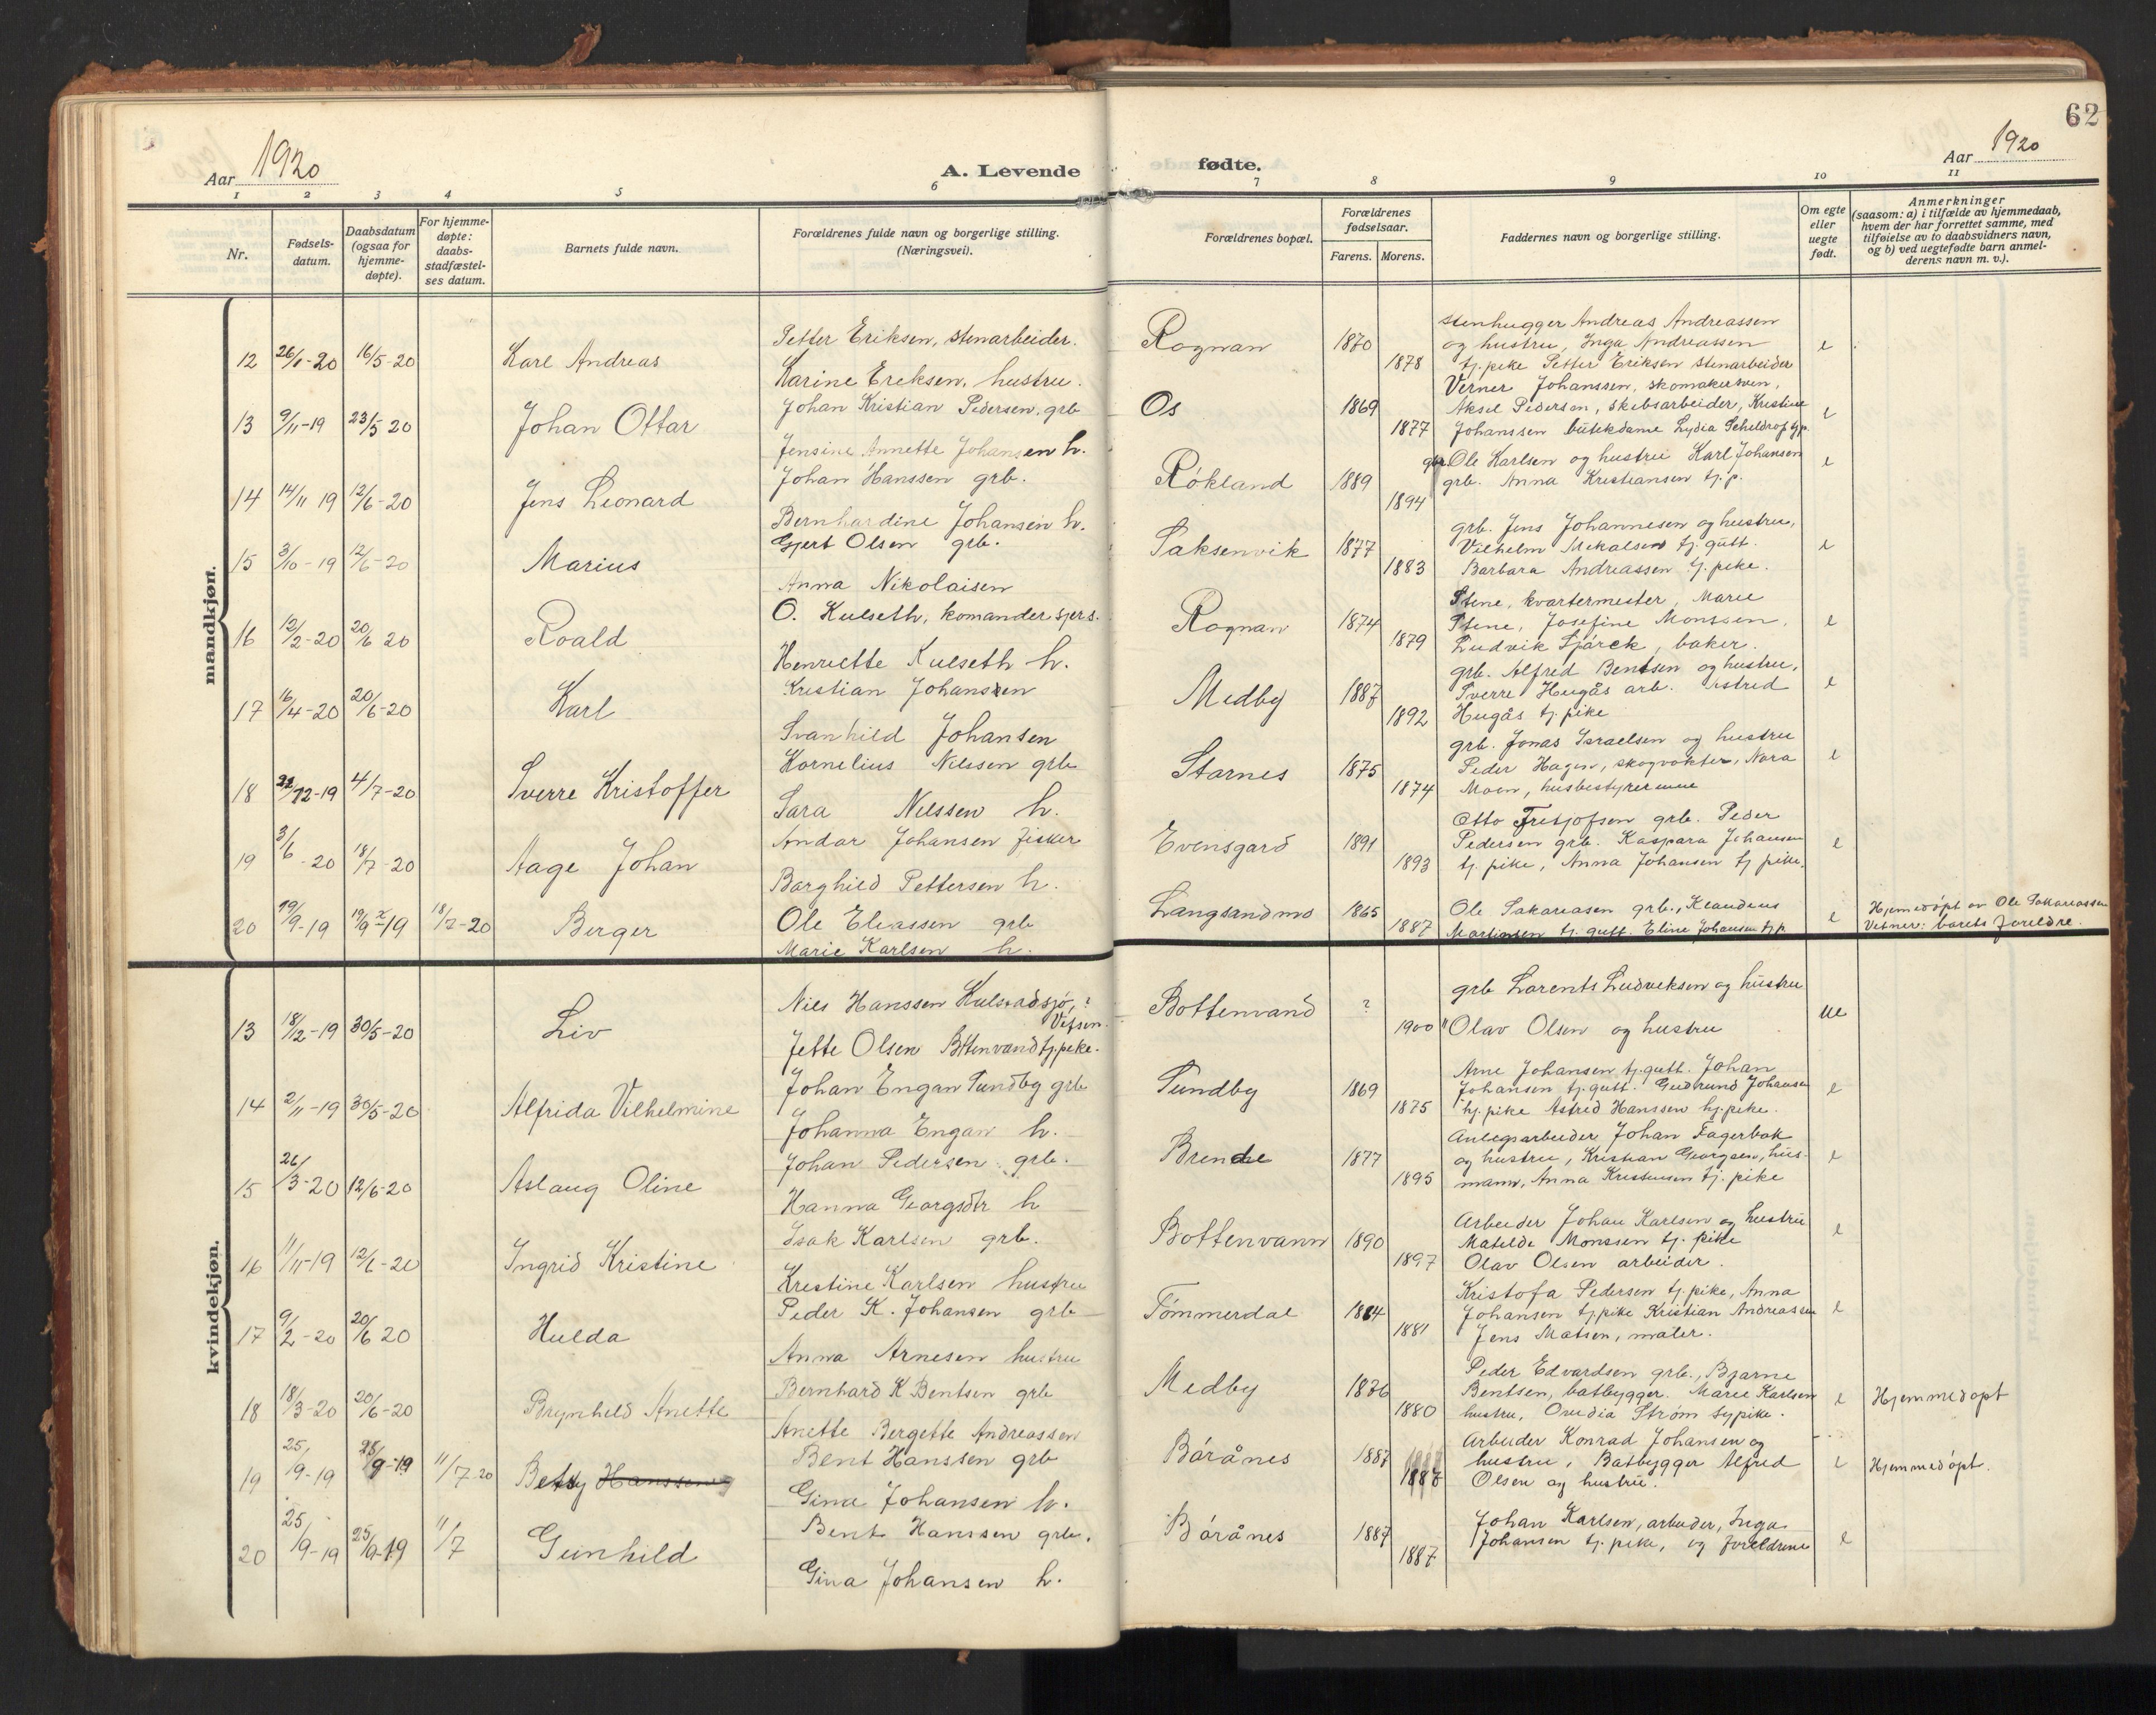 62
Aar 1920
A. Levende
fødte.
Aar 1920
1 2 3 4 5 6 7 8 9 10 11
Nr.
Fødsels-
datum.
Daabsdatum
(ogsaa for
hjemme-
døpte).
For hjemme-
døpte:
daabs-
stadfæstel-
ses datum.
Barnets fulde navn.
Forældrenes fulde navn og borgerlige stilling.
(Næringsvei).
Forældrenes bopæl.
Forældrenes
fødselsaar.
Farens. Morens.
Faddernes navn og borgerlige stilling.
Om egte
eller
uegte
født.
Anmerkninger
(saasom: a) i tilfælde av hjemmedaab,
hvem der har forrettet samme, med
tilføielse av to daabsvidners navn,
og b) ved uegtefødt barn anmel-
derens navn m. v.).
mandkjøn.
12 26/1-20 16/5-20 Karl Andreas
Petter Eriksen, stenarbeider.
Karine Ereksen, hustru.
Rognan 1870 1878
stenhugger Andreas Andreassen
og hustru, Inga Andreassen
tj. pike Petter Eriksen stenarbeider
e
13 9/11-19 23/5 20 Johan Ottar
Johan Kristian Pedersen, grb
Jensine Annette Johansen h.
Os 1869 1877
Verner Johanssen, skomakersven,
Aksel Pedersen, skibsarbeider, Kristine
Johanssen butekdame Lydia
e
14 14/11 19 12/6-20 Jens Leonard
Johan Hanssen grb.
Bernhardine Johansen h.
Røkland 1889 1894
gbr. Ole Karlsen og hustru Karl Johansen
grb. Anna Kristiansen tj. p.
e
15 3/10-19 12/6-20 Marius
Gjert Olsen grb.
Anna Nikolaisen
Saksenvik 1877 1883
grb. Jens Johannesen og hustru,
Vilhelm Mekalsen tj. gutt.
Barbara Andreassen tj. peke.
e
16 12/2-20 20/6 20 Roald
O. Kulseth, komandersjers.
Henriette Kulseth h.
Rognan 1874 1879
Stene, kvartermester, Marie
Stene, Josefine Monssen,
Ludvik Sjårck, baker.
e
17 16/4-20 20/6-20 Karl
Kristian Johansen
Svanhild Johansen
Medby 1887 1892
grb. Alfred Bentsen og hustru,
Sverre Hugås arb. Astrid
Hugås tj. pike
e
18 /12-19 4/7-20 Sverre Kristoffer
Kornelius Nilssen grb
Sara Nilssen h.
Starnes 1875 1874
grb. Jonas Israelsen og hustru
Peder Hagen, skogvokter, Nora
Moen, husbestyrerinne
e
19 3/6-20 18/7-20 Aage Johan
Andor Johansen fisker
Borghild Pettersen h.
Evensgard 1891 1893
Otto Fretjofsen grb. Peder
Pedersen grb. Kaspara Johansen
tj. pike, Anna Johansen tj pike.
e
20 19/9-19 19/9-19 18/7-20 Berger
Ole Eleassen grb
Marie Karlsen h.
Langsandmo 1865 1887
Ole Sakareasen grb., Klaudeus
Martinsen tj. gutt. Eline Johansen tj.p
e
Hjemmedøpt av Ole Sakareassen
Vitner: barets foreldre.
kvindekjøn.
13 18/12-19 30/5-20 Liv
Nils Hanssen ?
Vefsen.
Jette Olsen Bottenvand tj. peke.
Bottenvand ? 1900
grb Lorents Ludveksen og hustru
" Olav Olsen og hustru
ue
14 2/11-19 30/5-20 Alfrida Vilhelmine
Johan Engan Sundby grb
Johanna Engan h.
Sundby 1869 1875
Arne Johansen tj.gutt. Johan
Johansen tj.gutt. Gudrund Johansen
hj. pike Astrid Hanssen hj.peke.
e
15 26/3-20 12/6-20 Aslaug Oline
Johan Pedersen grb.
Hanna Georgsdtr h
Brende 1877 1895
Anlegsarbeider Johan Fagerbak
og hustru, Kristian Georgsen, hus-
mann, Anna Kristensen tj. pike
e
16 11/11-19 12/6-20 Ingrid Kristine
Isak Karlsen grb.
Krestine Karlsen hustru
Bottenvann 1890 1897
Arbeider Johan Karlsen og hustru
Matelde Monssen tj. pike
Olav Olsen arbeider.
e
17 9/2-20 20/6 20 Hulda
Peder K. Johansen grb
Anna Arnesen hustru
Tømmerdal 1884 1881
Kristofa Pedersen tj. pike, Anna
Johansen tj.pike Kristian Andreassen
Jens Matsen, maler.
e
18 18/3-20 20/6-20 Brynheld Anette
Bernhard K Bentsen grb
Anette Bergette Andreassen
Medby 1876 1880
Peder Edvardsen grb., Bjarne
Bentsen, batbygger. Marie Karlsen
hustru, Ovedia Strøm sypike.
e
Hjemmedøpt
19 25/9-19 25/9-19 11/7-20 Betsy Hanssen
Bent Hanssen grb
Gina Johansen h.
Båränes 1887 1887
Arbeider Konrad Johansen og
hustru, Batbygger Alfred
Olsen og hustru.
e
Hjemmedøpt.
20 25/9-19 25/9-19 11/7 Gunhild
Bent Hanssen grb.
Gina Johansen h.
Båränes 1887 1887
Johan Karlsen, arbeider, Inga
Johansen tj. peke, og foreldrene
e